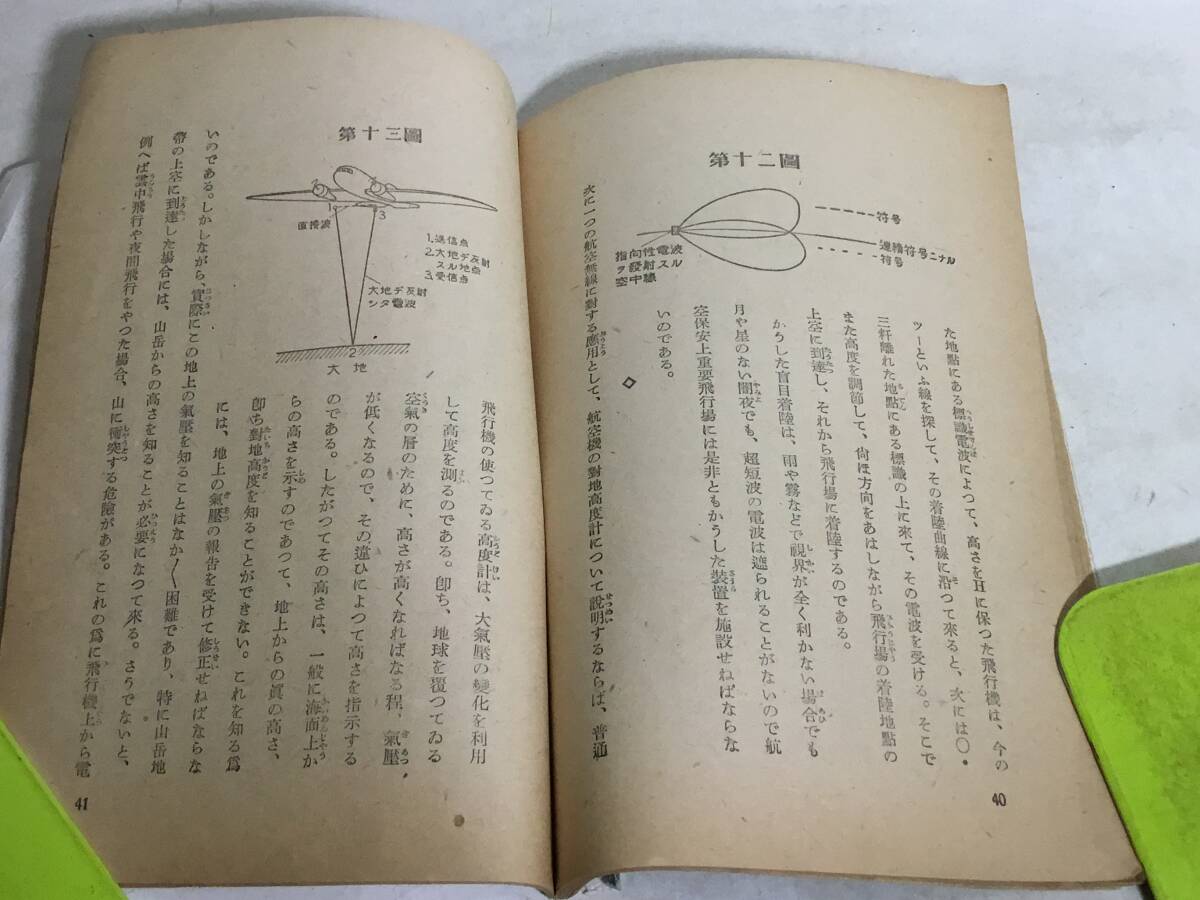 第十二圖
符号
連続符号ニナル
符号
指向性電波
ヲ發射スル
空中線
た地點にある標識電波によつて、高さをHに保つた飛行機は、今の
ツーといふ線を探して、その着陸曲線に沿つて來ると、次には〇・
三粁離れた地點にある標識の上に來て、その電波を受ける。そこで
また高度を調節して、尙ほ方向をあはしながら飛行場の着陸地點の
上空に到達し、それから飛行場に着陸するのである。
かうした盲目着陸は、雨や霧などで視界が全く利かない場合でも
月や星のない闇夜でも、超短波の電波は遮られることがないので航
空保安上重要飛行場には是非ともかうした装置を施設せねばならな
いのである。
◇
次に一つの航空無線に對する應用として、航空機の對地高度計について說明するならば、普通
40
第十三圖
直接波
1
3
1.送信点
2.大地デ反射
スル地点
3.受信点
大地デ反射
シタ電波
2
大地
飛行機の使つてゐる高度計は、大氣壓の變化を利用
して高度を測るのである。卽ち、地球を覆つてゐる
空氣の層のために、高さが高くなればなる程、氣壓
が低くなるので、その違ひによつて高さを指示する
のである。したがつてその高さは、一般に海面上か
らの高さを示すのであつて、地上からの眞の高さ、
卽ち對地高度を知ることができない。これを知る爲
には、地上の氣壓の報告を受けて修正せねばならな
いのである。しかしながら、實際にこの地上の氣壓を知ることはなか〱困難であり、特に山岳地
帶の上空に到達した場合には、山岳からの高さを知ることが必要になつて來る。さうでないと、
例へば雲中飛行や夜間飛行をやつた場合、山に衝突する危險がある。これの爲に飛行機上から電
41